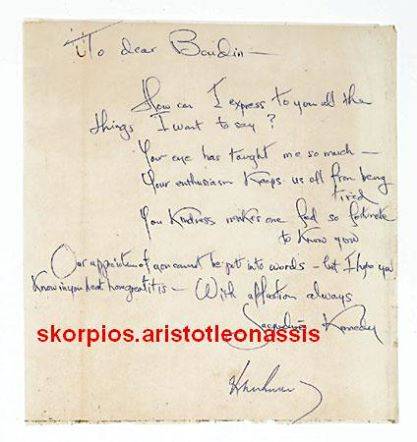 To dear Boudin —
How can I express to you all the
things I want to say?
Your eye has taught me so much —
Your enthusiasm Keeps us all from being
tired
You Kindness makes one feel so fortunate
to Know you
Our appreciation of you cannot be put into words — but I hope you
Know in your heart how great it is — With affection always
skorpios.aristotleonassis
Jacqueline Kennedy